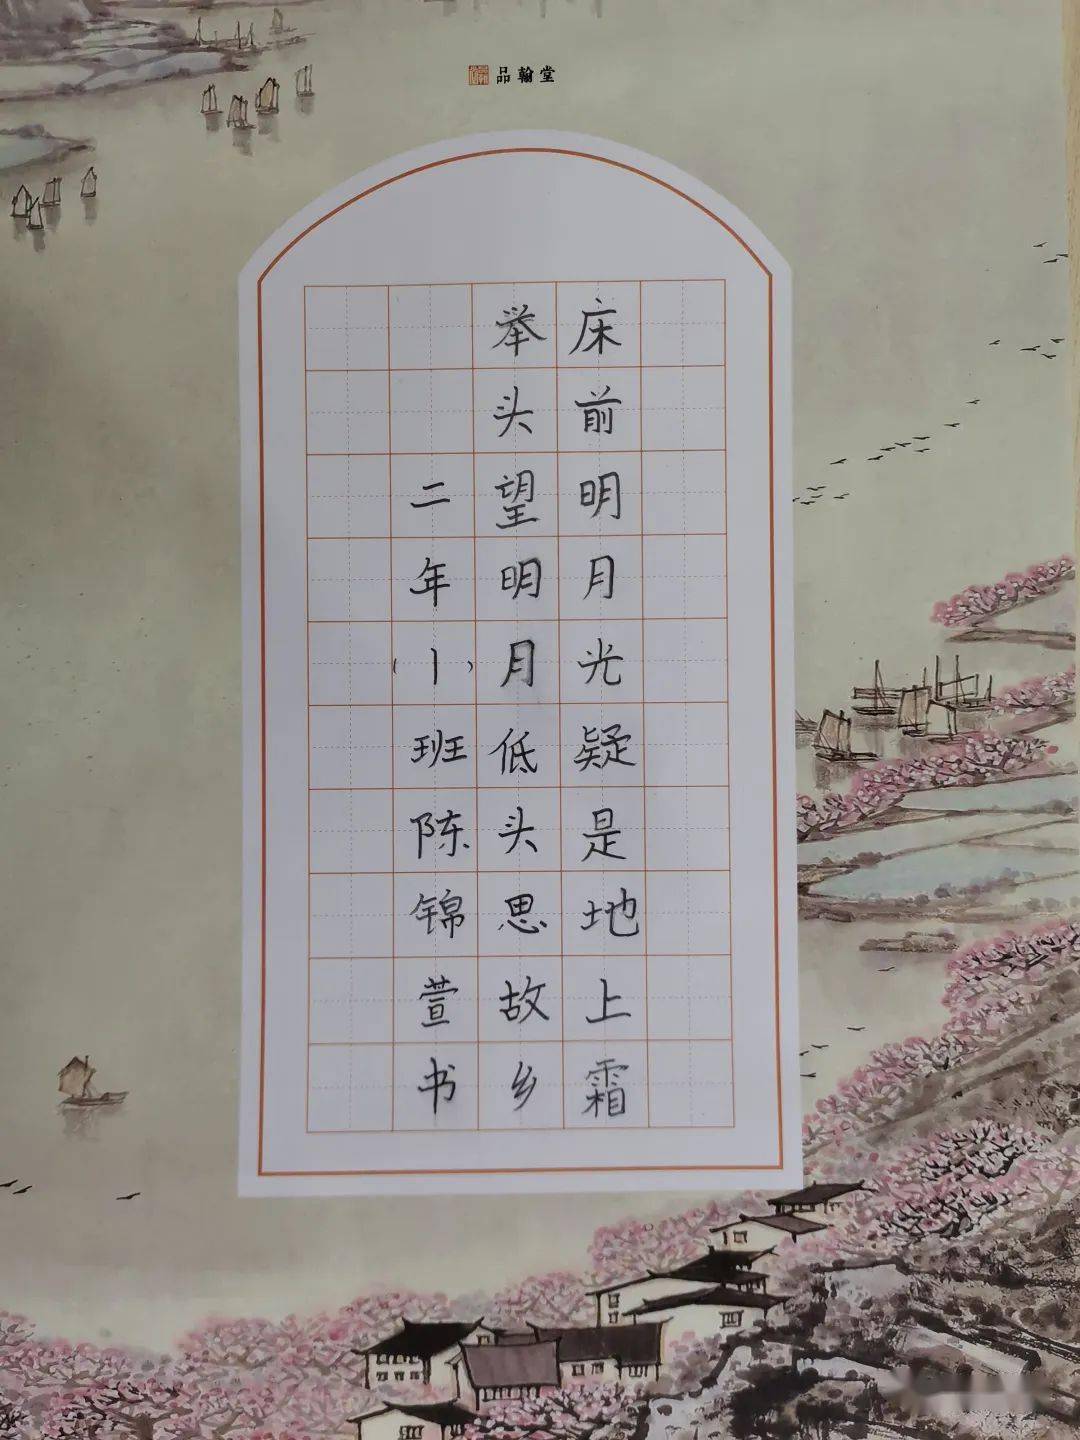 品翰堂
床前明月光疑是地上霜
举头望明月低头思故乡
二年(1)班陈锦萱书